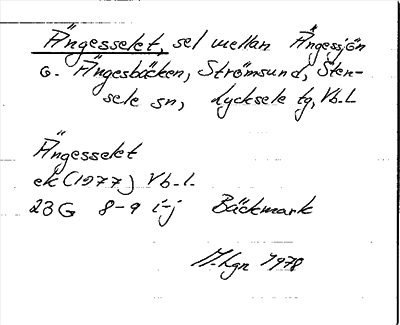 Ängesselet, sel mellan Ängessjön
o. Ängesbäcken, Strömsund, Sten-
sele sn, Lycksele tg, Vb.l.
Ängesselet
ek (1977) Vb.l.
23G 8-9 i-j Bäckmark
1978